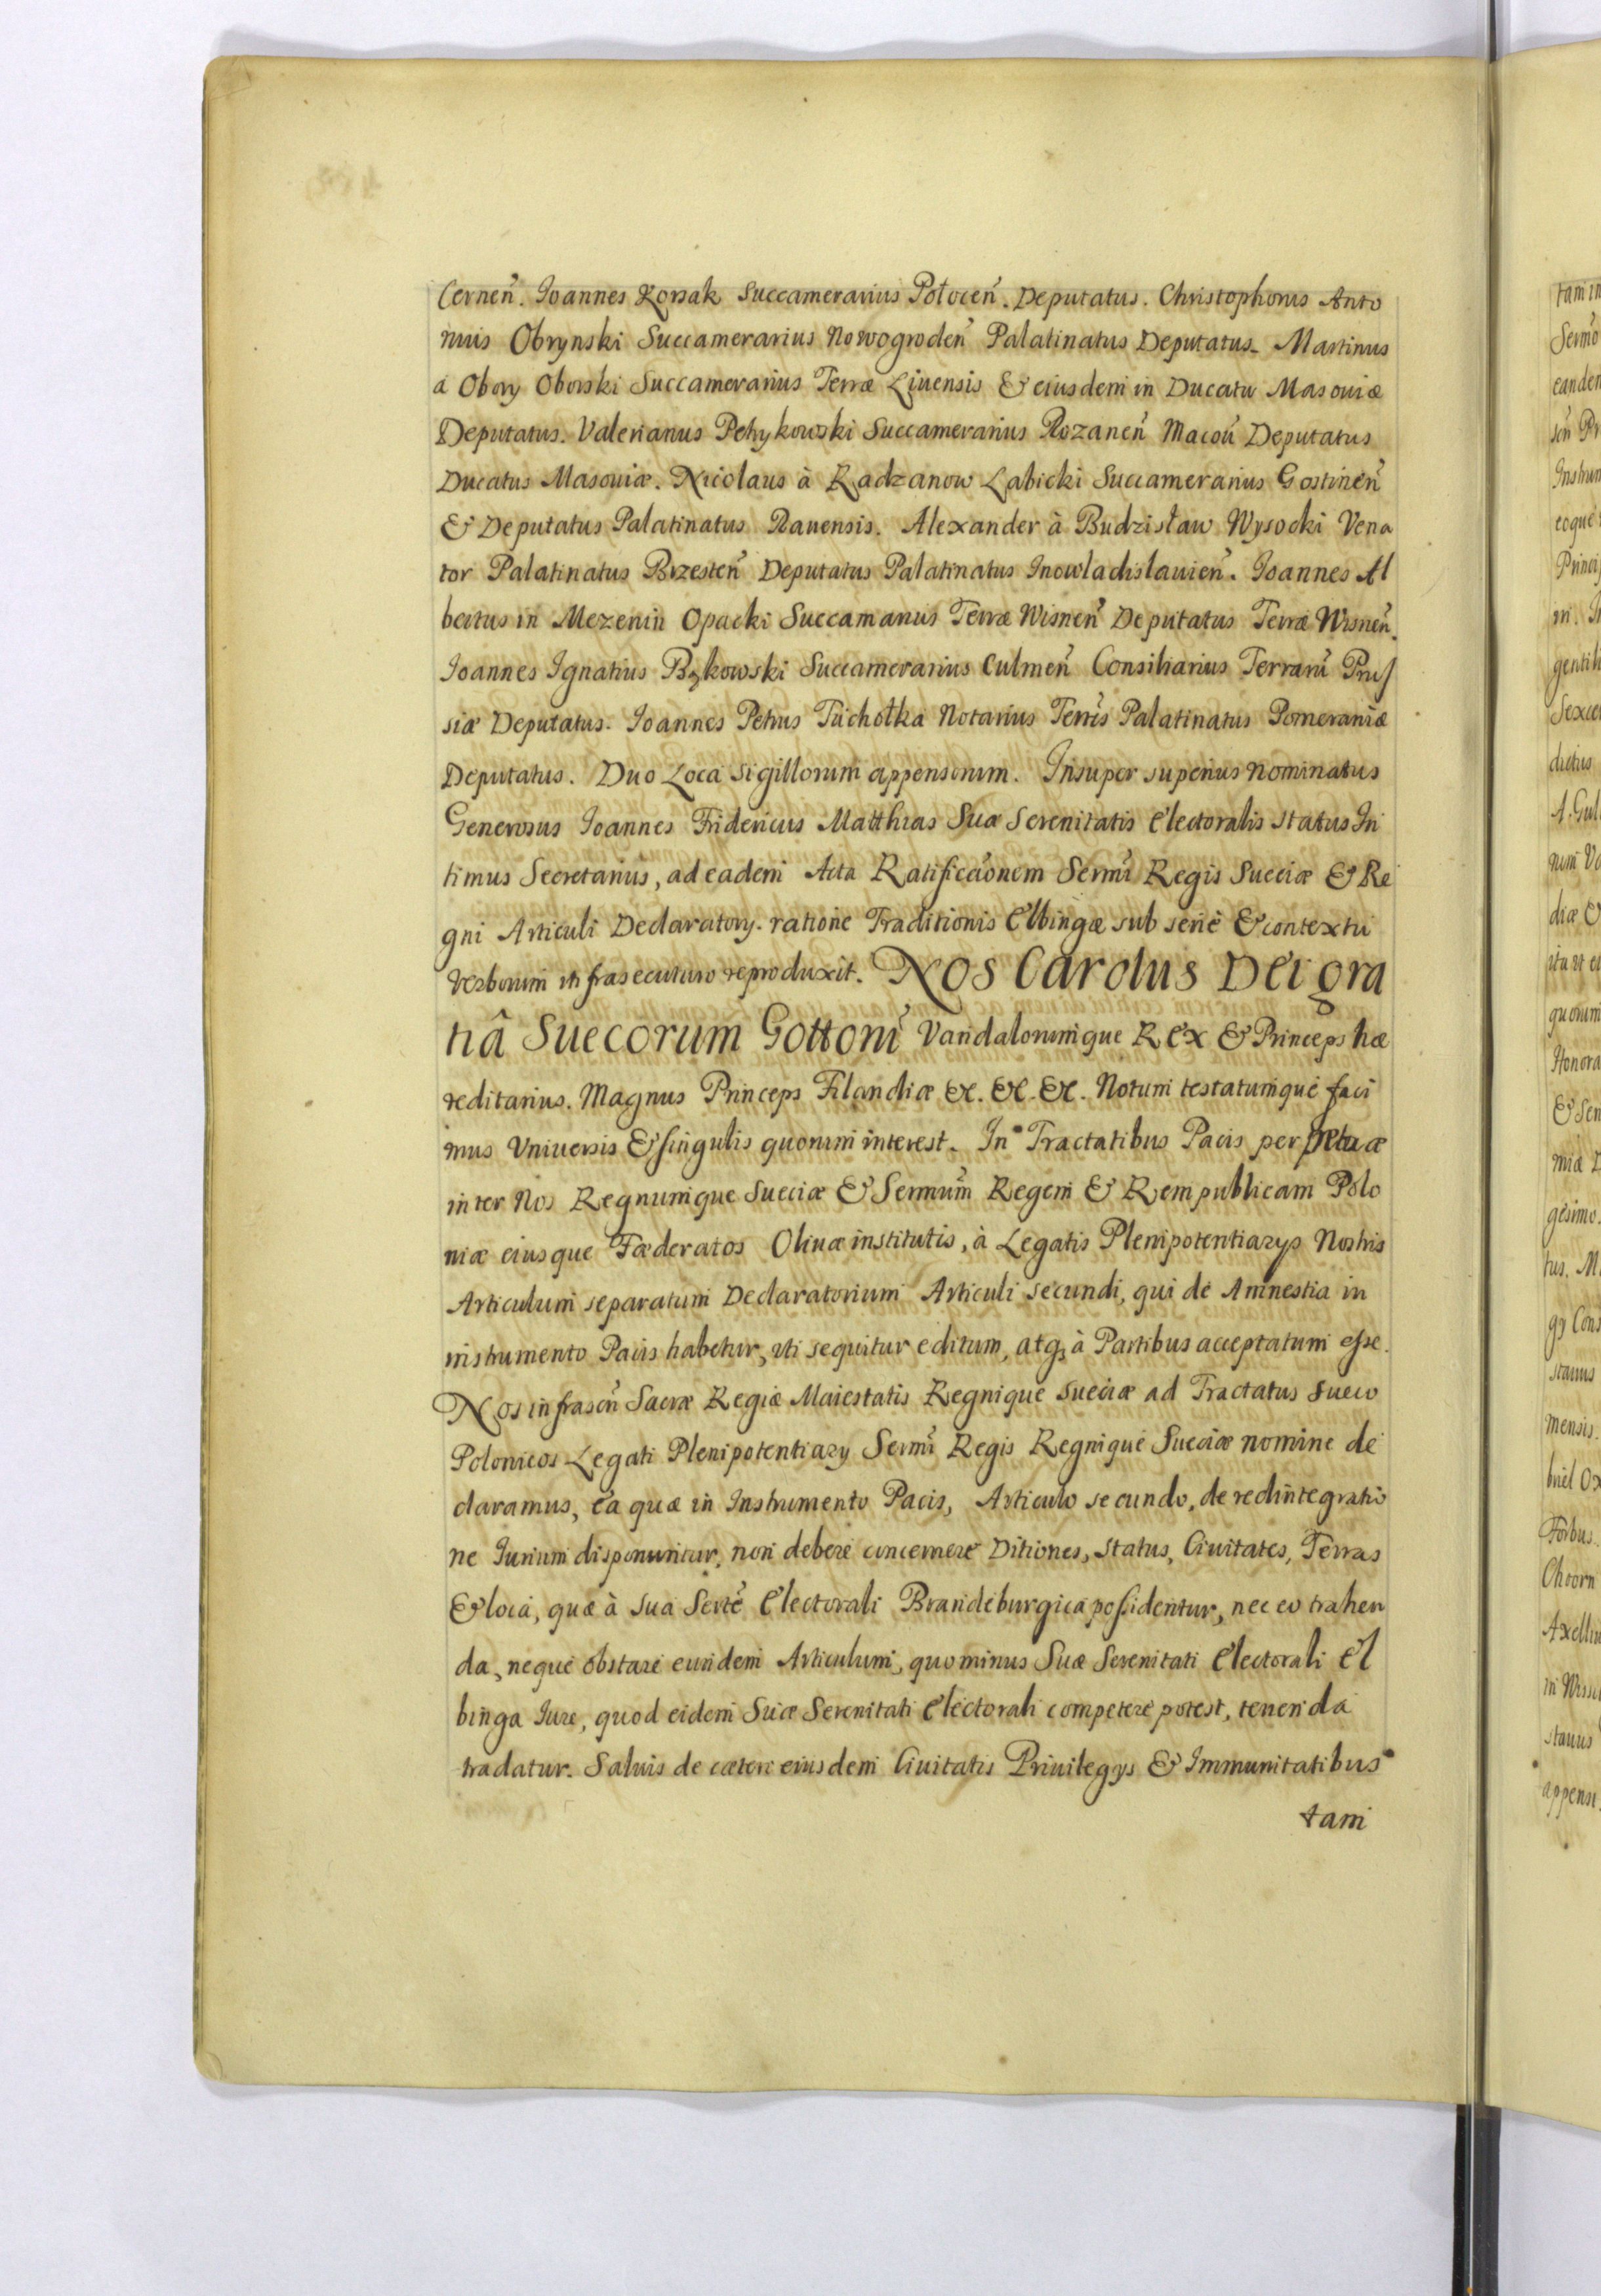 Cerneñ. Ioannes Korsak Succamerarius Połoceñ. Deputatus. Christophorus Anto
nius Obrynski Succamerarius Nowogrodeñ Palatinatus Deputatus. Martinus
à Obory Oborski Succamerarius Terræ Liuensis & eiusdem in Ducatu Masouiæ
Deputatus. Valerianus Petrykowski Succamerarius Rozaneñ Macoũ Deputatus
Ducatus Masouiæ. Nicolaus à Radzanow Łabicki Succamerarius Gostineñ
& Deputatus Palatinatus Rauensis. Alexander à Budzisław Wysocki Vena
tor Palatinatus Brzesteñ Deputatus Palatinatus Inowladislauieñ. Ioannes Al
bertus in Mezenin Opacki Succamarius Terræ Wisneñ Deputatus Terræ Wisneñ.
Ioannes Ignatius Bąkowski Succamerarius Culmeñ Consiliarius Terrarũ Pruſ
siæ Deputatus. Ioannes Petrus Tuchołka Notarius Terrīs Palatinatus Pomeraniæ
Deputatus. Duo Loca sigillorum appensorum. Insuper superius nominatus
Generosus Ioannes Fridericus Matthias Suæ Serenitatis Electoralis status In
timus Secretarius, ad eadem Acta Ratificc̃ionem Sermĩ Regis Sueciæ & Re
gni Articuli Declaratory. ratione Traditionis Elbingæ sub serie & contextu
verborum infrasecuturo reproduxit. Nos Carolus Dei gra
tiâ Suecorum Gottorũ Vandalorumque Rex & Princeps hæ
reditarius. Magnus Princeps Filandiæ &c. &c. &c. Notum testatumque faci
mus Vniuersis & singulis quorum interest. In Tractatibus Pacis perpetuæ
inter Nos Regnumque Sueciæ & Sermum̃ Regem & Rempublicam Polo
niæ eiusque Fæderatos Oliuæ institutis, à Legatis Plenipotentiarys Nostris
Articulum separatum Declaratorium Articuli secundi, qui de Amnestia in
instrumento Pacis habetur, vti sequitur editum, atq, à Partibus acceptatum esse.
Nos infrascñ Sacræ Regiæ Maiestatis Regnique Sueciæ ad Tractatus Sueco
Polonicos Legati Plenipotentiary Sermĩ Regis Regnique Sueciæ nomine de
claramus, ea quæ in Instrumento Pacis, Articulo secundo, de redintegratio
ne Iurium disponuntur, non debere concernere Ditiones, status, Ciuitates, Terras
& loca, quæ à Sua Sertẽ Electorali Brandeburgica poſsidentur, nec eo trahen
da, neque obstare eundem Articulum, quominus Suæ Serenitati Electorali El
binga Iure, quod eidem Suæ Serenitati Electorali competere potest, tenenda
tradatur. Saluis de cætero eiusdem Ciuitatis Priuilegys & Immunitatibus
tam